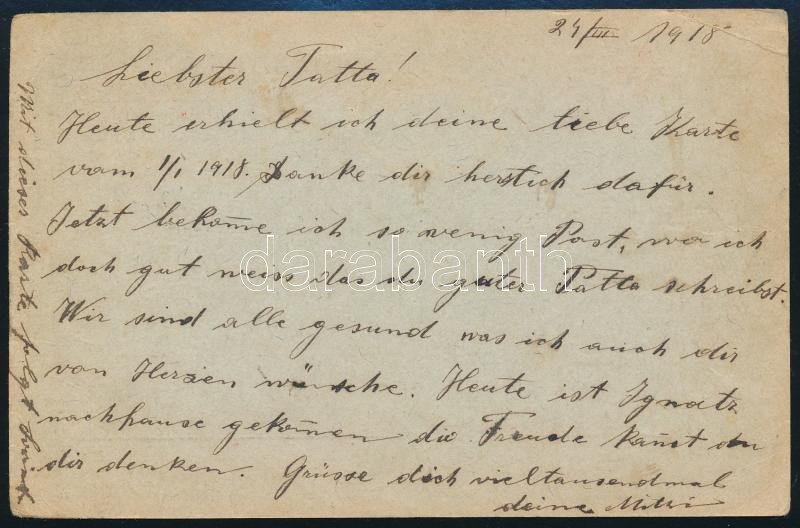 24/III 1918
Liebster Tatta!
Heute erhielt ich deine liebe Karte
vom 1/I 1918. Danke dir herzlich dafür.
Jetzt bekom̅e ich so wenig Post, wo ich
doch gut weiss das du guter Tatta schreibst.
Wir sind alle gesund was ich auch dir
von Herzen wünsche. Heute ist Ignatz
nachhause gekom̅en die Freude kan̅st du
dir denken. Grüsse dich vieltausendmal
deine Mitzi
Mit dieser Karte folgt
darabanth